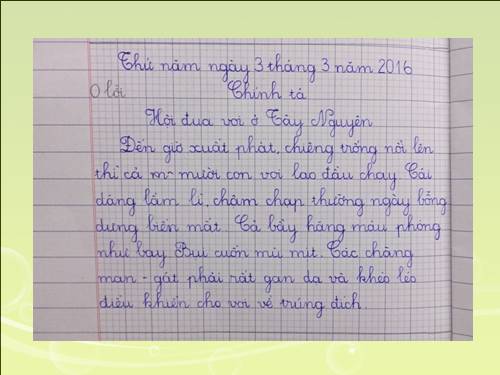 Thứ năm ngày 3 tháng 3 năm 2016
0 lỗi Chính tả
Hội đua voi ở Tây Nguyên
Đến giờ xuất phát, chiêng trống nổi lên
thì cả mười con voi lao đầu chạy Cái
dáng lầm lì, chậm chạp thường ngày bỗng
dưng biến mất. Cả bầy hăng máu phóng
như bay Bụi cuốn mù mịt. Các chàng
man - gát phải rất gan dạ và khéo léo
điều khiển cho voi về trúng đích.